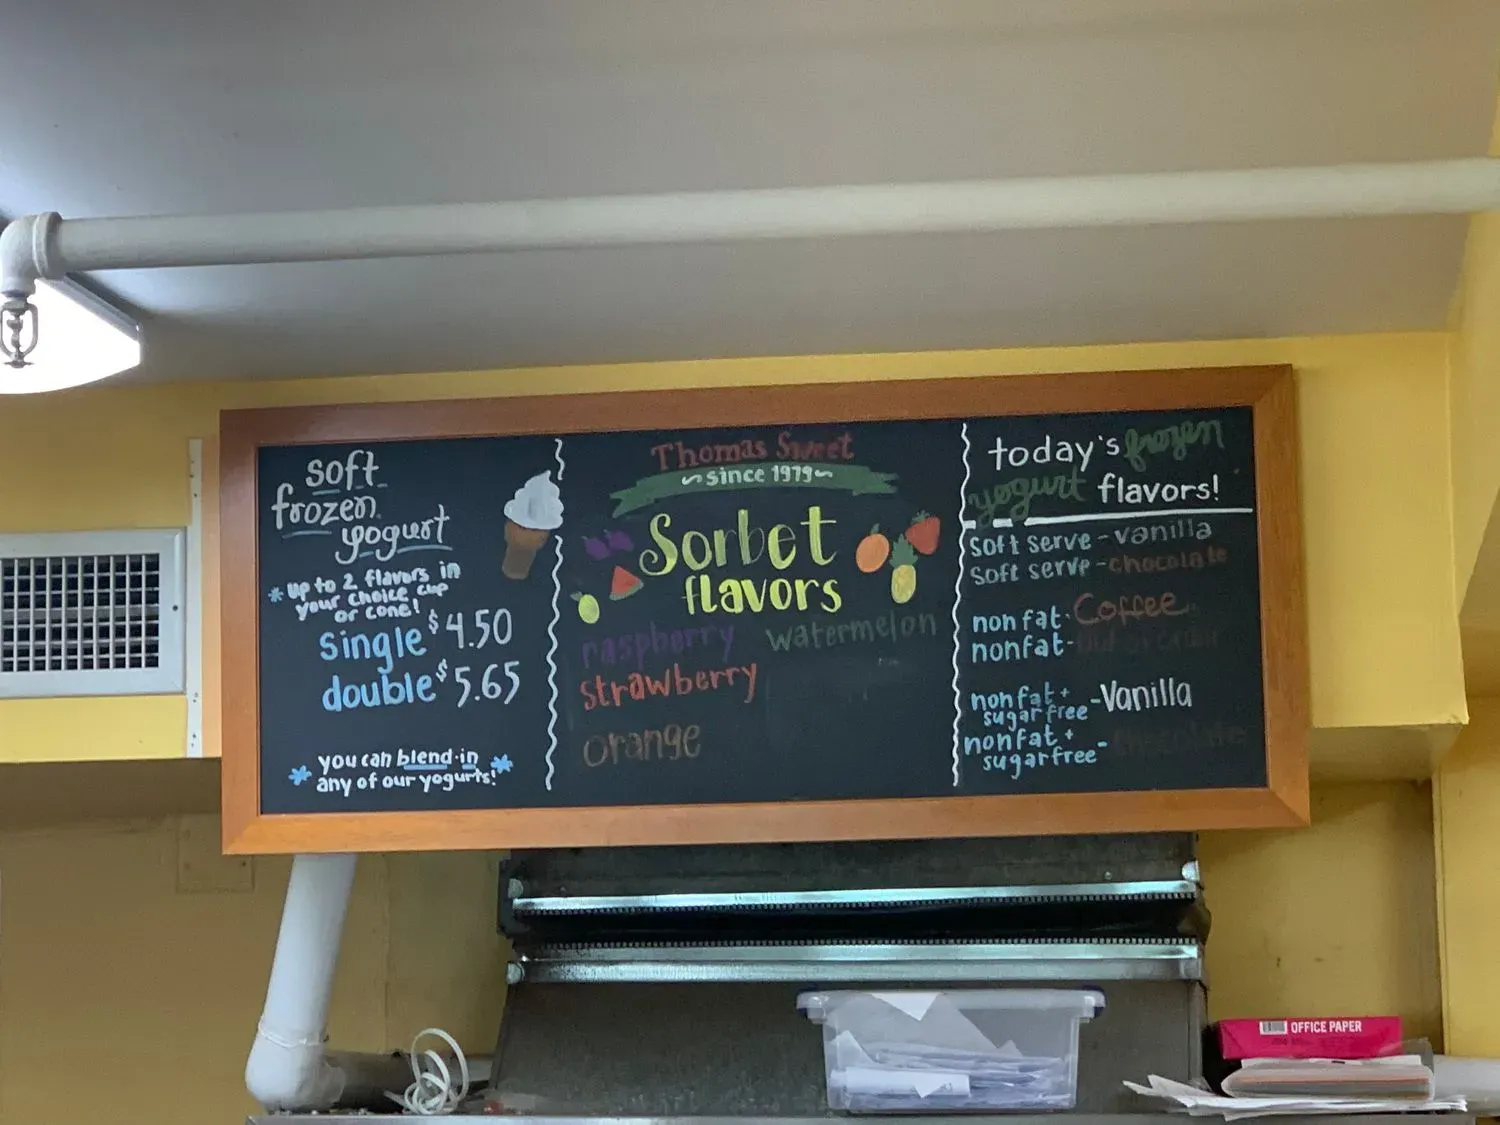 soft
frozen
yogurt
* up to 2 flavors in
your choice cup
or cone!
single $4.50
double $5.65
* you can blend-in *
any of our yogurts!
Thomas Sweet
~since 1979~
Sorbet
flavors
raspberry watermelon
strawberry
orange
today's frozen
yogurt flavors!
soft serve - vanilla
soft serve - chocolate
nonfat - Coffee
nonfat -
nonfat +
sugarfree - Vanilla
nonfat +
sugarfree - chocolate
OFFICE PAPER